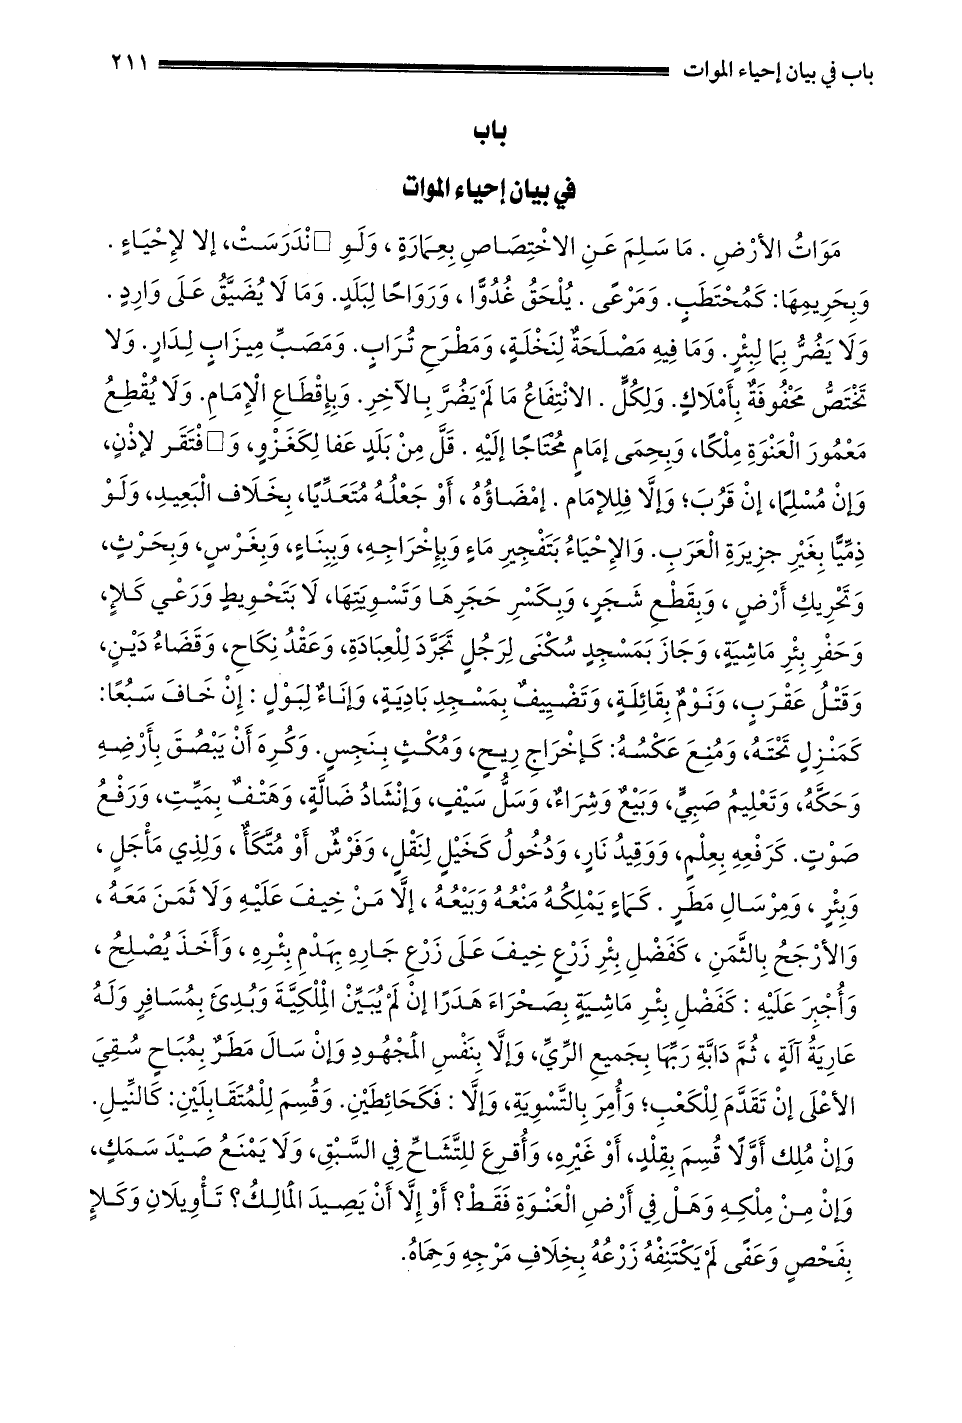 باب في بيان إحياء الموات ٢١١
باب
في بيان إحياء الموات
مَوَاتُ الأَرْضِ . مَا سَلِمَ عَنِ الاخْتِصَاصِ بِعِمَارَةٍ ، وَلَوِ □نْدَرَسَتْ، إلا لإِحْيَاءٍ .
وَبِحَرِيمِهَا: كَمُحْتَطَبٍ. وَمَرْعًى . يُلْحَقُ غُدُوًّا ، وَرَوَاحًا لِبَلَدٍ. وَمَا لَا يُضَيَّقُ عَلَى وَارِدٍ .
وَلَا يَضُرُّ بِهَا لِبِئْرٍ. وَمَا فِيهِ مَصْلَحَةٌ لِنَخْلَةٍ، وَمَطْرَحِ تُرَابٍ. وَمَصَبِّ مِيزَابٍ لِدَارٍ. وَلا
تَخْتَصُّ مَحْفُوفَةٌ بِأَمْلَاكٍ. وَلِكُلٍّ . الانْتِفَاعُ مَا لَمْ يَضُرَّ بِالآخِرِ. وَبِإِقْطَاعِ الْإِمَامِ. وَلَا يُقْطِعُ
مَعْمُورَ الْعَنْوَةِ مِلْكًا، وَبِحِمَى إمَامٍ مُحْتَاجًا إلَيْهِ . قَلَّ مِنْ بَلَدٍ عَفَا لِكَغَزْوٍ، وَ□فْتَقَر لإذْنٍ،
وَإِنْ مُسْلِمًا، إنْ قَرُبَ؛ وَإلَّا فَلِلإمَام . إمْضَاؤُهُ ، أَوْ جَعْلُهُ مُتَعَدِّيًا، بِخَلَاف الْبَعِيدِ، وَلَوْ
ذِمِّيًّا بِغَيْرِ جزِيرَةِ الْعَرَبِ. وَالإحْيَاءُ بَتَفْجِيرِ مَاءٍ وَبِإخْرَاجِهِ، وَبِبِنَاءٍ، وَبِغَرْسٍ، وَبِحَرْثٍ،
وَتَحْرِيكِ أَرْضٍ ، وَبِقَطْعِ شَجَرٍ، وَبِكَسْرِ حَجَرِهَا وَتَسْوِيَتِهَا، لَا بَتَحْوِيطٍ وَرَعْي كَلإٍ،
وَحَفْرِ بِئْرِ مَاشِيَةٍ، وَجَازَ بَمَسْجِدٍ سُكْنَى لِرَجُلٍ تَجَرَّدَ لِلْعِبَادَةِ، وَعَقْدُ نِكَاحٍ، وَقَضَاءُ دَيْنٍ،
وَقَتْلُ عَقْرَبٍ، وَنَوْمٌ بِقَائِلَةٍ، وَتَضْيِيفٌ بِمَسْجِدِ بَادِيَةٍ، وَإنَاءٌ لِبَوْلٍ : إنْ خَافَ سَبُعًا:
كَمَنْزِلٍ تَحْتَهُ، وَمُنِعَ عَكْسُهُ: كَإخْرَاجِ رِيحٍ، وَمُكْثٍ بِنَجِسٍ. وَكُرِهَ أَنْ يَبْصُقَ بِأَرْضِهِ
وَحَكَّهُ، وَتَعْلِيمُ صَبِيٍّ، وَبَيْعٌ وَشِرَاءٌ، وَسَلُّ سَيْفٍ، وَإنْشَادُ ضَالَّةٍ، وَهَتْفٌ بِمَيِّتٍ، وَرَفْعُ
صَوْتٍ. كَرَفْعِهِ بِعِلْمٍ، وَوَقِيدُ نَارٍ، وَدُخُولُ كَخَيْلٍ لِنَقْلٍ، وَفَرْشٌ أَوْ مُتَّكَأٌ ، وَلِذِي مَأْجَلٍ ،
وَبِئْرٍ ، وَمِرْسَالِ مَطَرٍ . كَمَاءٍ يَمْلِكُهُ مَنْعُهُ وَبَيْعُهُ ، إلَّا مَنْ خِيفَ عَلَيْهِ وَلَا ثَمَنَ مَعَهُ ،
وَالأَرْجَحُ بِالثَّمَنِ ، كَفَضْلِ بِئْرِ زَرْعٍ خِيفَ عَلَى زَرْعِ جَارِهِ بِهَدْمِ بِئْرِهِ ، وَأَخَذَ يُصْلِحُ ،
وَأُجْبِرَ عَلَيْهِ : كَفَضْلِ بِئْرِ مَاشِيَةٍ بِصَحْرَاءَ هَدَرًا إنْ لَمْ يُبَيِّنْ الْمِلْكِيَّةَ وَبُدِئَ بِمُسَافِرٍ وَلَهُ
عَارِيَةُ آلَةٍ ، ثُمَّ دَابَّةِ رَبِّهَا بِجَمِيعِ الرِّيِّ، وَإلَّا بِنَفْسِ الْمَجْهُودِ وَإنْ سَالَ مَطَرٌ بِمُبَاحٍ سُقِيَ
الأعْلَى إنْ تَقَدَّمَ لِلْكَعْبِ؛ وَأُمِرَ بِالتَّسْوِيَةِ، وَإلَّا : فَكَحَائِطَيْنِ. وَقُسِمَ لِلْمُتَقَابِلَيْنِ: كَالنِّيلِ.
وَإنْ مُلِك أَوَّلًا قُسِمَ بِقِلْدٍ، أَوْ غَيْرِهِ، وَأُقرِعَ لِلتَّشَاحِّ فِي السَّبْقِ، وَلَا يَمْنَعُ صَيْدَ سَمَكٍ،
وَإنْ مِنْ مِلْكِهِ وَهَلْ فِي أَرْضِ الْعَنْوَةِ فَقَطْ؟ أَوْ إلَّا أَنْ يَصِيدَ الْمَالِكُ؟ تَأْوِيلَانِ وَكَلإٍ
بِفَحْصٍ وَعَفًى لَمْ يَكْتَنِفْهُ زَرْعُهُ بِخِلَافِ مَرْجِهِ وَحِمَاهُ.